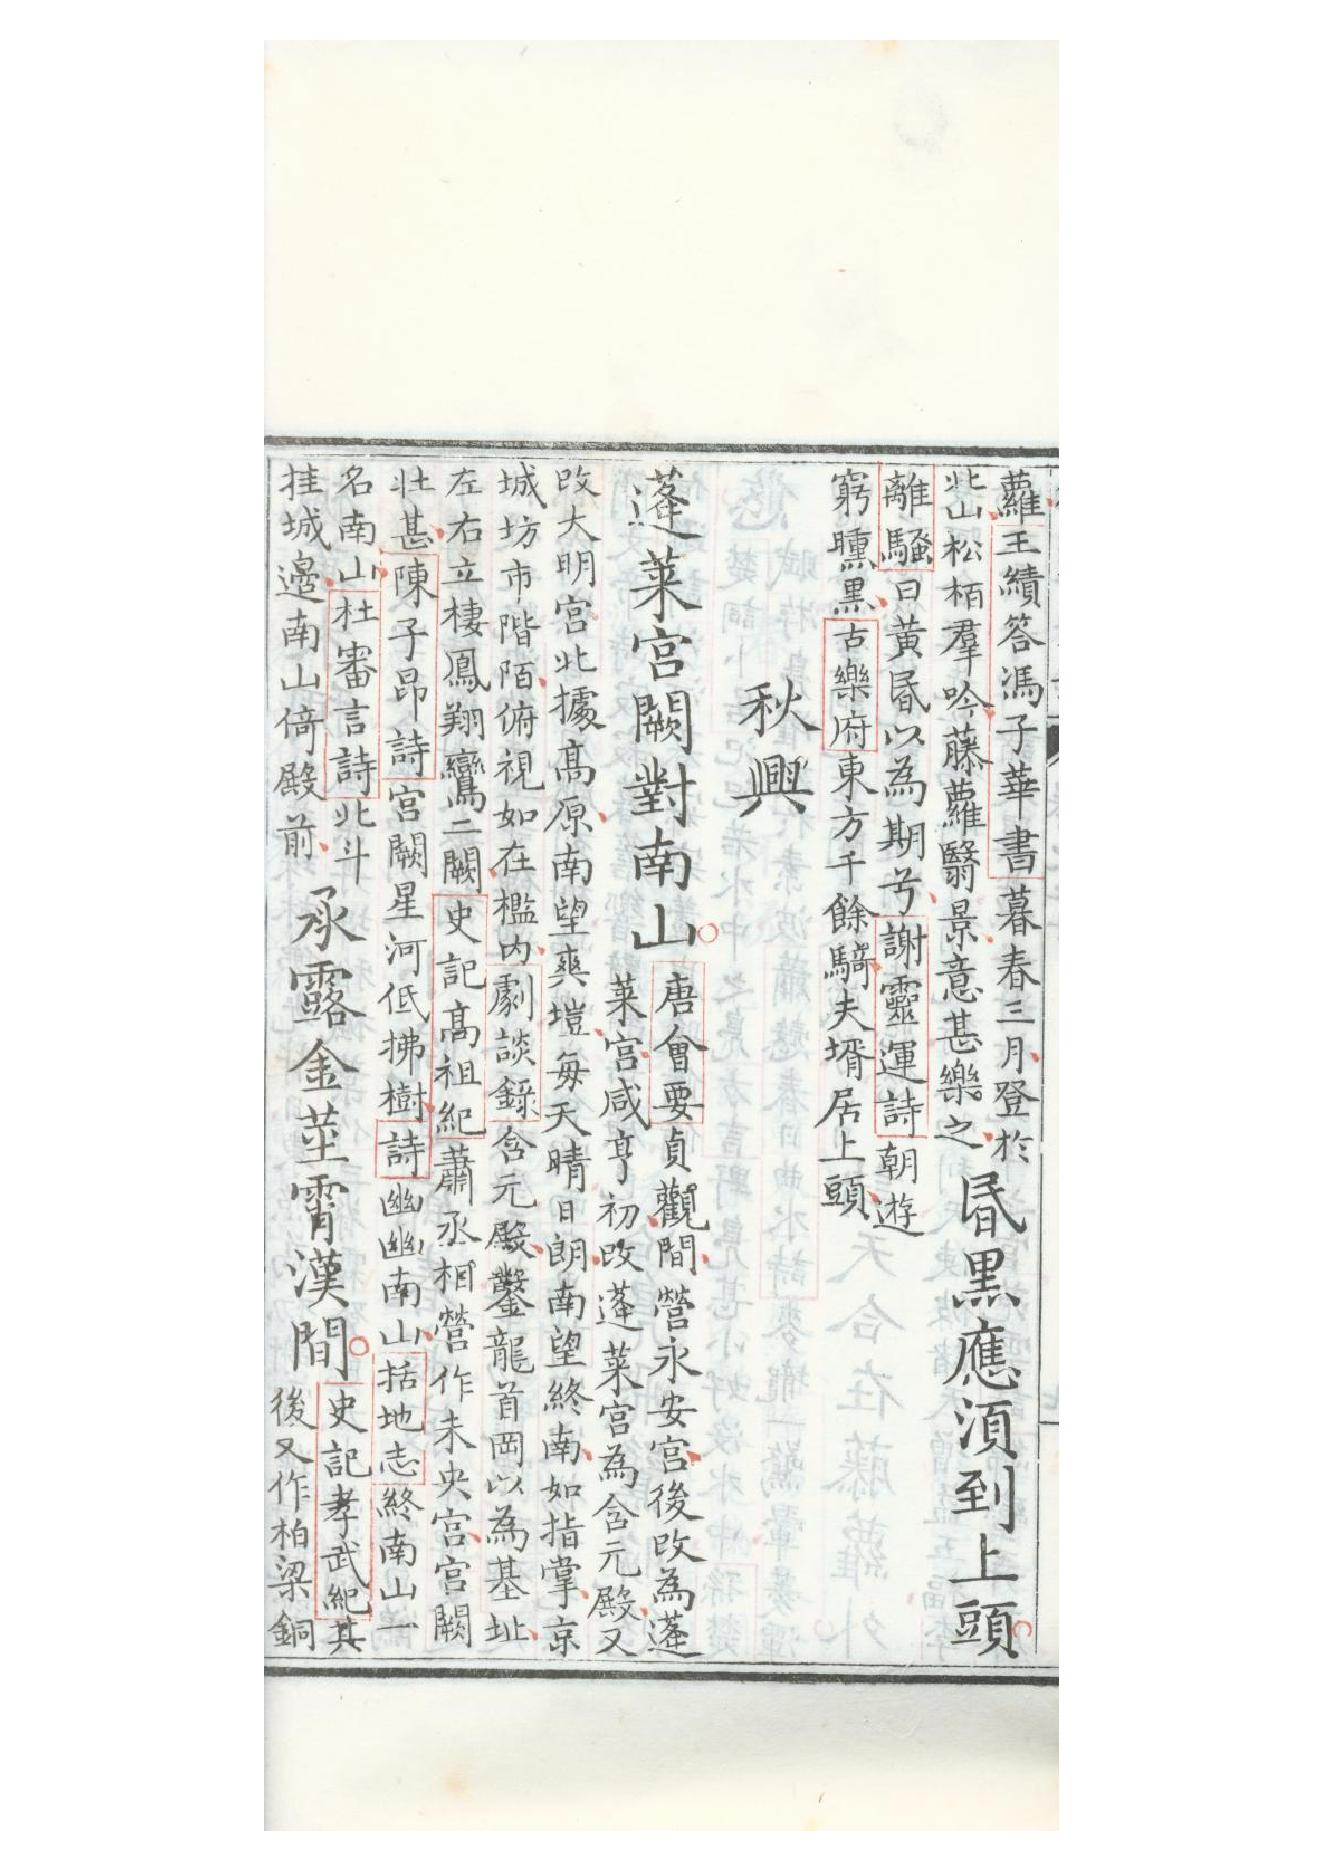 蘿王績答馮子華書暮春三月登於
此山松栢羣吟藤蘿翳景意甚樂之
昏黒應湏到上頭
離騷曰黃昏以為期兮謝靈運詩朝遊
窮曛黒古樂府東方千餘騎夫壻居上頭
秋興
蓬萊宮闕對南山
唐會要貞觀間營永安宮後改為蓬
萊宮咸亨初改蓬萊宮為含元殿又
改大明宮北據高原南望爽塏每天晴日朗南望終南如指掌京
城坊市階陌俯視如在檻内劇談錄含元殿鑿龍首岡以為基址
左右立棲鳳翔鸞二闕史記高祖紀蕭丞相營作未央宮宮闕
壯甚陳子昂詩宮闕星河低拂樹詩幽幽南山括地志終南山一
名南山杜審言詩北斗
挂城邉南山倚殿前
承露金莖霄漢間
史記孝武紀其
後又作柏梁銅